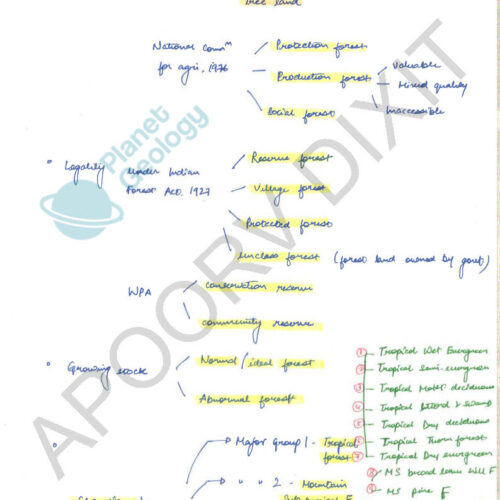 tree land
National Commⁿ
for agri, 1976
Protection forest
Production forest
Social forest
Valuable
Mixed quality
Inaccessible
Planet
Geology
Legality under Indian
Forest Act, 1927
Reserve forest
Village forest
Protected forest
Unclass forest (forest land owned by govt.)
WPA
conservation reserve
community reserve
Growing stock
Normal/ideal forest
Abnormal forest
Major group 1 - Tropical
forest
" " 2 - Mountain
1 Tropical Wet Evergreen
2 Tropical Semi-evergreen
3 Tropical Moist deciduous
4 Tropical littoral & swamp
5 Tropical Dry deciduous
6 Tropical Thorn forest
7 Tropical Dry evergreen
8 MS broad leave Hill F
9 MS pine F
APOORV DIXIT